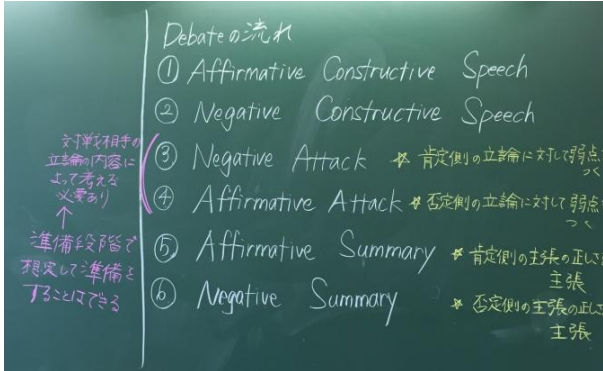 Debateの流れ
① Affirmative Constructive Speech
② Negative Constructive Speech
③ Negative Attack ☆ 肯定側の立論に対して弱点を
つく
④ Affirmative Attack ☆ 否定側の立論に対して弱点
つく
⑤ Affirmative Summary ☆ 肯定側の主張の正しさ
主張
⑥ Negative Summary ☆ 否定側の主張の正しさ
主張
対戦相手の
立論の内容に
よって考える
必要あり
↑
準備段階で
想定して準備を
することはできる